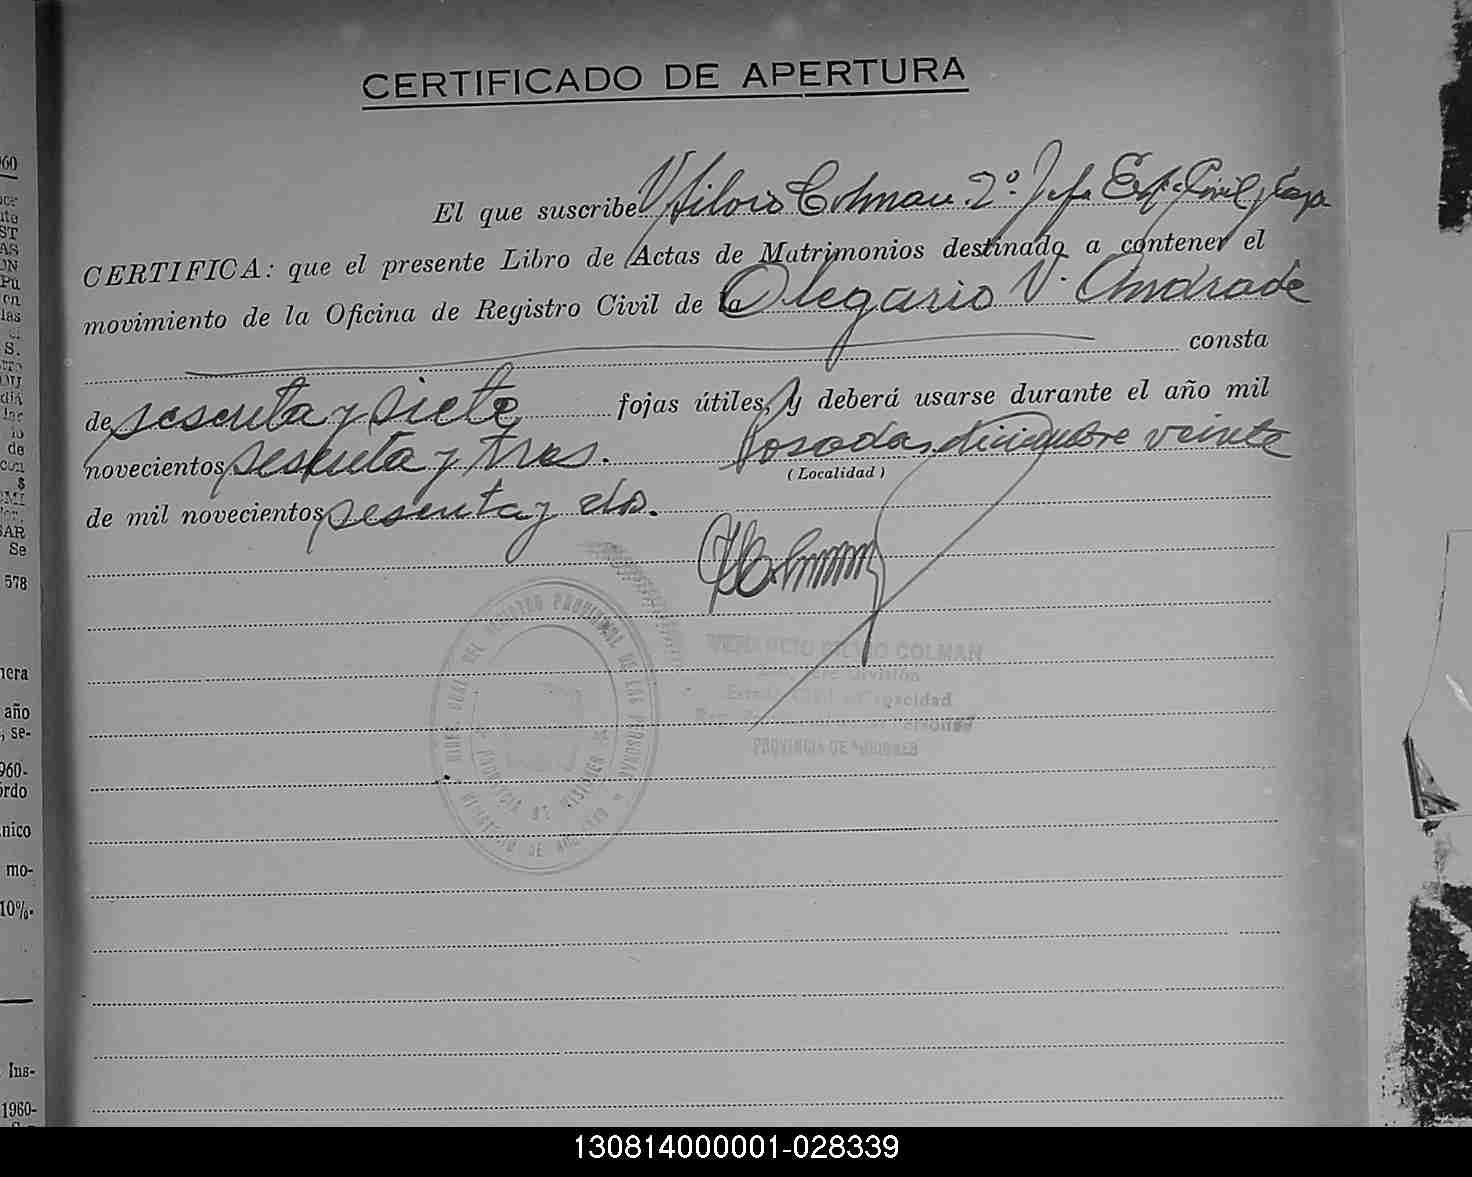 CERTIFICADO DE APERTURA
El que suscribe V Silvio Colman 2º. Jefe Est. Civil y Capa
CERTIFICA: que el presente Libro de Actas de Matrimonios destinado a contener el
movimiento de la Oficina de Registro Civil de la Olegario V. Andrade
consta
de sesenta y siete fojas útiles, y deberá usarse durante el año mil
novecientos sesenta y tres. Posadas, diciembre veinte
(Localidad)
de mil novecientos sesenta y dos.
COLMAN
División
PROVINCIA DE MISIONES
REGISTRO PROVINCIAL DE LAS PERSONAS
PROVINCIA DE MISIONES
578
año
, se-
960-
nico
mo-
10%.
Ins-
1960-
130814000001-028339